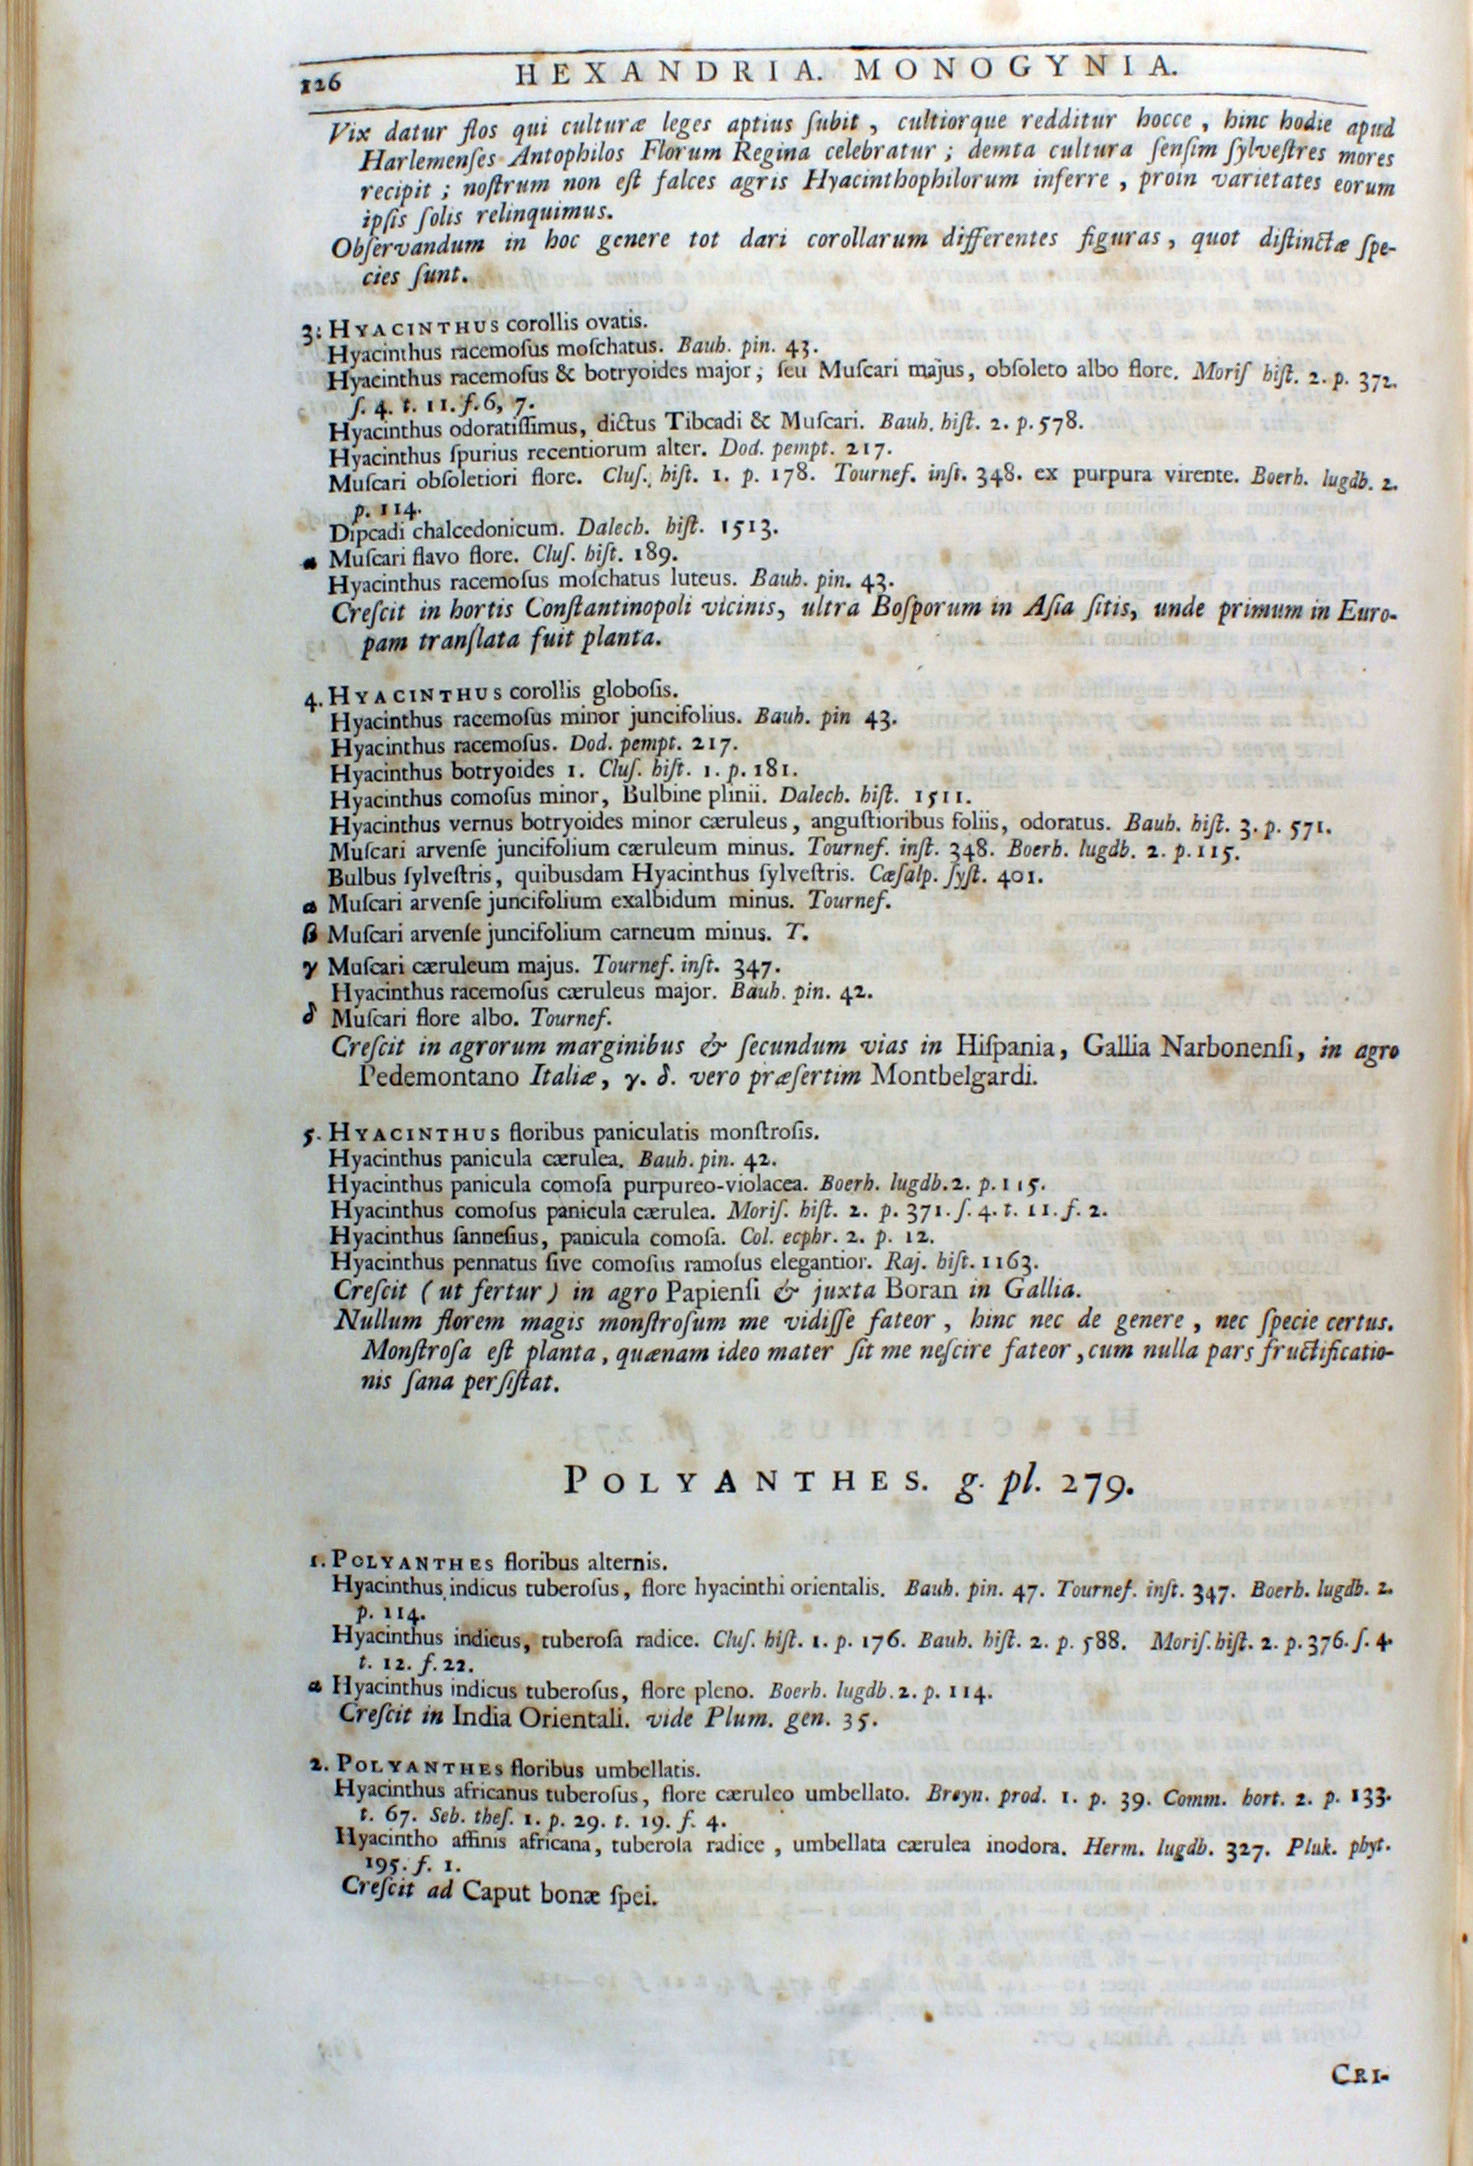 126 HEXANDRIA. MONOGYNIA.
Vix datur flos qui culturæ leges aptius ſubit, cultiorque redditur hocce, hinc hodie apud
Harlemenſes Antophilos Florum Regina celebratur; demta cultura ſenſim ſylveſtres mores
recipit; noſtrum non eſt falces agris Hyacinthophilorum inferre, proin varietates eorum
ipſis ſolis relinquimus.
Obſervandum in hoc genere tot dari corollarum differentes figuras, quot diſtinctæ ſpe-
cies ſunt.
3. HYACINTHUS corollis ovatis.
Hyacinthus racemoſus moſchatus. Bauh. pin. 43.
Hyacinthus racemoſus & botryoides major, ſeu Muſcari majus, obſoleto albo flore. Moriſ hiſt. 2. p. 372.
ſ. 4. t. 11. f. 6, 7.
Hyacinthus odoratiſſimus, dictus Tibcadi & Muſcari. Bauh. hiſt. 2. p. 578.
Hyacinthus ſpurius recentiorum alter. Dod. pempt. 217.
Muſcari obſoletiori flore. Cluſ. hiſt. 1. p. 178. Tournef. inſt. 348. ex purpura virente. Boerh. lugdb. 2.
p. 114.
Dipcadi chalcedonicum. Dalech. hiſt. 1513.
α Muſcari flavo flore. Cluſ. hiſt. 189.
Hyacinthus racemoſus moſchatus luteus. Bauh. pin. 43.
Creſcit in hortis Conſtantinopoli vicinis, ultra Boſporum in Aſia ſitis, unde primum in Euro-
pam tranſlata fuit planta.
4. HYACINTHUS corollis globoſis.
Hyacinthus racemoſus minor juncifolius. Bauh. pin 43.
Hyacinthus racemoſus. Dod. pempt. 217.
Hyacinthus botryoides 1. Cluſ. hiſt. 1. p. 181.
Hyacinthus comoſus minor, Bulbine plinii. Dalech. hiſt. 1511.
Hyacinthus vernus botryoides minor cæruleus, anguſtioribus foliis, odoratus. Bauh. hiſt. 3. p. 571.
Muſcari arvenſe juncifolium cæruleum minus. Tournef. inſt. 348. Boerh. lugdb. 2. p. 115.
Bulbus ſylveſtris, quibusdam Hyacinthus ſylveſtris. Cæſalp. ſyſt. 401.
α Muſcari arvenſe juncifolium exalbidum minus. Tournef.
β Muſcari arvenſe juncifolium carneum minus. T.
γ Muſcari cæruleum majus. Tournef. inſt. 347.
Hyacinthus racemoſus cæruleus major. Bauh. pin. 42.
δ Muſcari flore albo. Tournef.
Creſcit in agrorum marginibus & ſecundum vias in Hiſpania, Gallia Narbonenſi, in agro
Pedemontano Italiæ, γ. δ. vero præſertim Montbelgardi.
5. HYACINTHUS floribus paniculatis monſtroſis.
Hyacinthus panicula cærulea. Bauh. pin. 42.
Hyacinthus panicula comoſa purpureo-violacea. Boerh. lugdb. 2. p. 115.
Hyacinthus comoſus panicula cærulea. Moriſ. hiſt. 2. p. 371. ſ. 4. t. 11. f. 2.
Hyacinthus ſanneſius, panicula comoſa. Col. ecphr. 2. p. 12.
Hyacinthus pennatus ſive comoſus ramoſus elegantior. Raj. hiſt. 1163.
Creſcit (ut fertur) in agro Papienſi & juxta Boran in Gallia.
Nullum florem magis monſtroſum me vidiſſe fateor, hinc nec de genere, nec ſpecie certus.
Monſtroſa eſt planta, quænam ideo mater ſit me neſcire fateor, cum nulla pars fructificatio-
nis ſana perſiſtat.
POLYANTHES. g. pl. 279.
1. POLYANTHES floribus alternis.
Hyacinthus indicus tuberoſus, flore hyacinthi orientalis. Bauh. pin. 47. Tournef. inſt. 347. Boerh. lugdb. 2.
p. 114.
Hyacinthus indicus, tuberoſa radice. Cluſ. hiſt. 1. p. 176. Bauh. hiſt. 2. p. 588. Moriſ. hiſt. 2. p. 376. ſ. 4.
t. 12. f. 22.
α Hyacinthus indicus tuberoſus, flore pleno. Boerh. lugdb. 2. p. 114.
Creſcit in India Orientali. vide Plum. gen. 35.
2. POLYANTHES floribus umbellatis.
Hyacinthus africanus tuberoſus, flore cæruleo umbellato. Breyn. prod. 1. p. 39. Comm. hort. 2. p. 133.
t. 67. Seb. theſ. 1. p. 29. t. 19. f. 4.
Hyacintho affinis africana, tuberoſa radice, umbellata cærulea inodora. Herm. lugdb. 327. Pluk. phyt.
195. f. 1.
Creſcit ad Caput bonæ ſpei.
CRI-